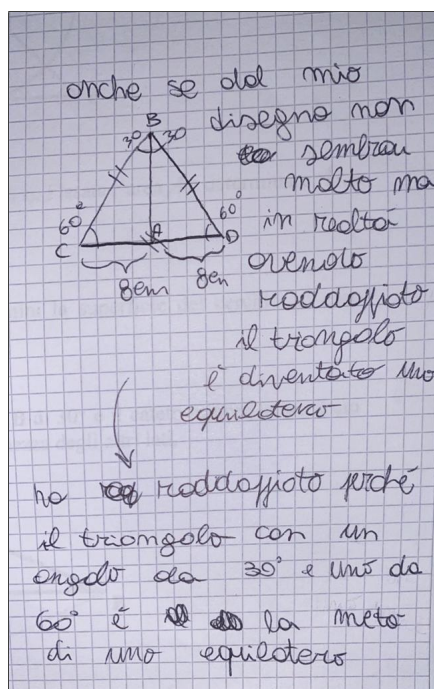 anche se dal mio
B
disegno non
30 30
sembrau
molto ma
60°
60°
in realtà
C
A
D
avendo
8cm
8cm
raddoppiato
il triangolo
è diventato uno
equilatero
ho raddoppiato perché
il triangolo con un
angolo da 30° e uno da
60° è la metà
di uno equilatero